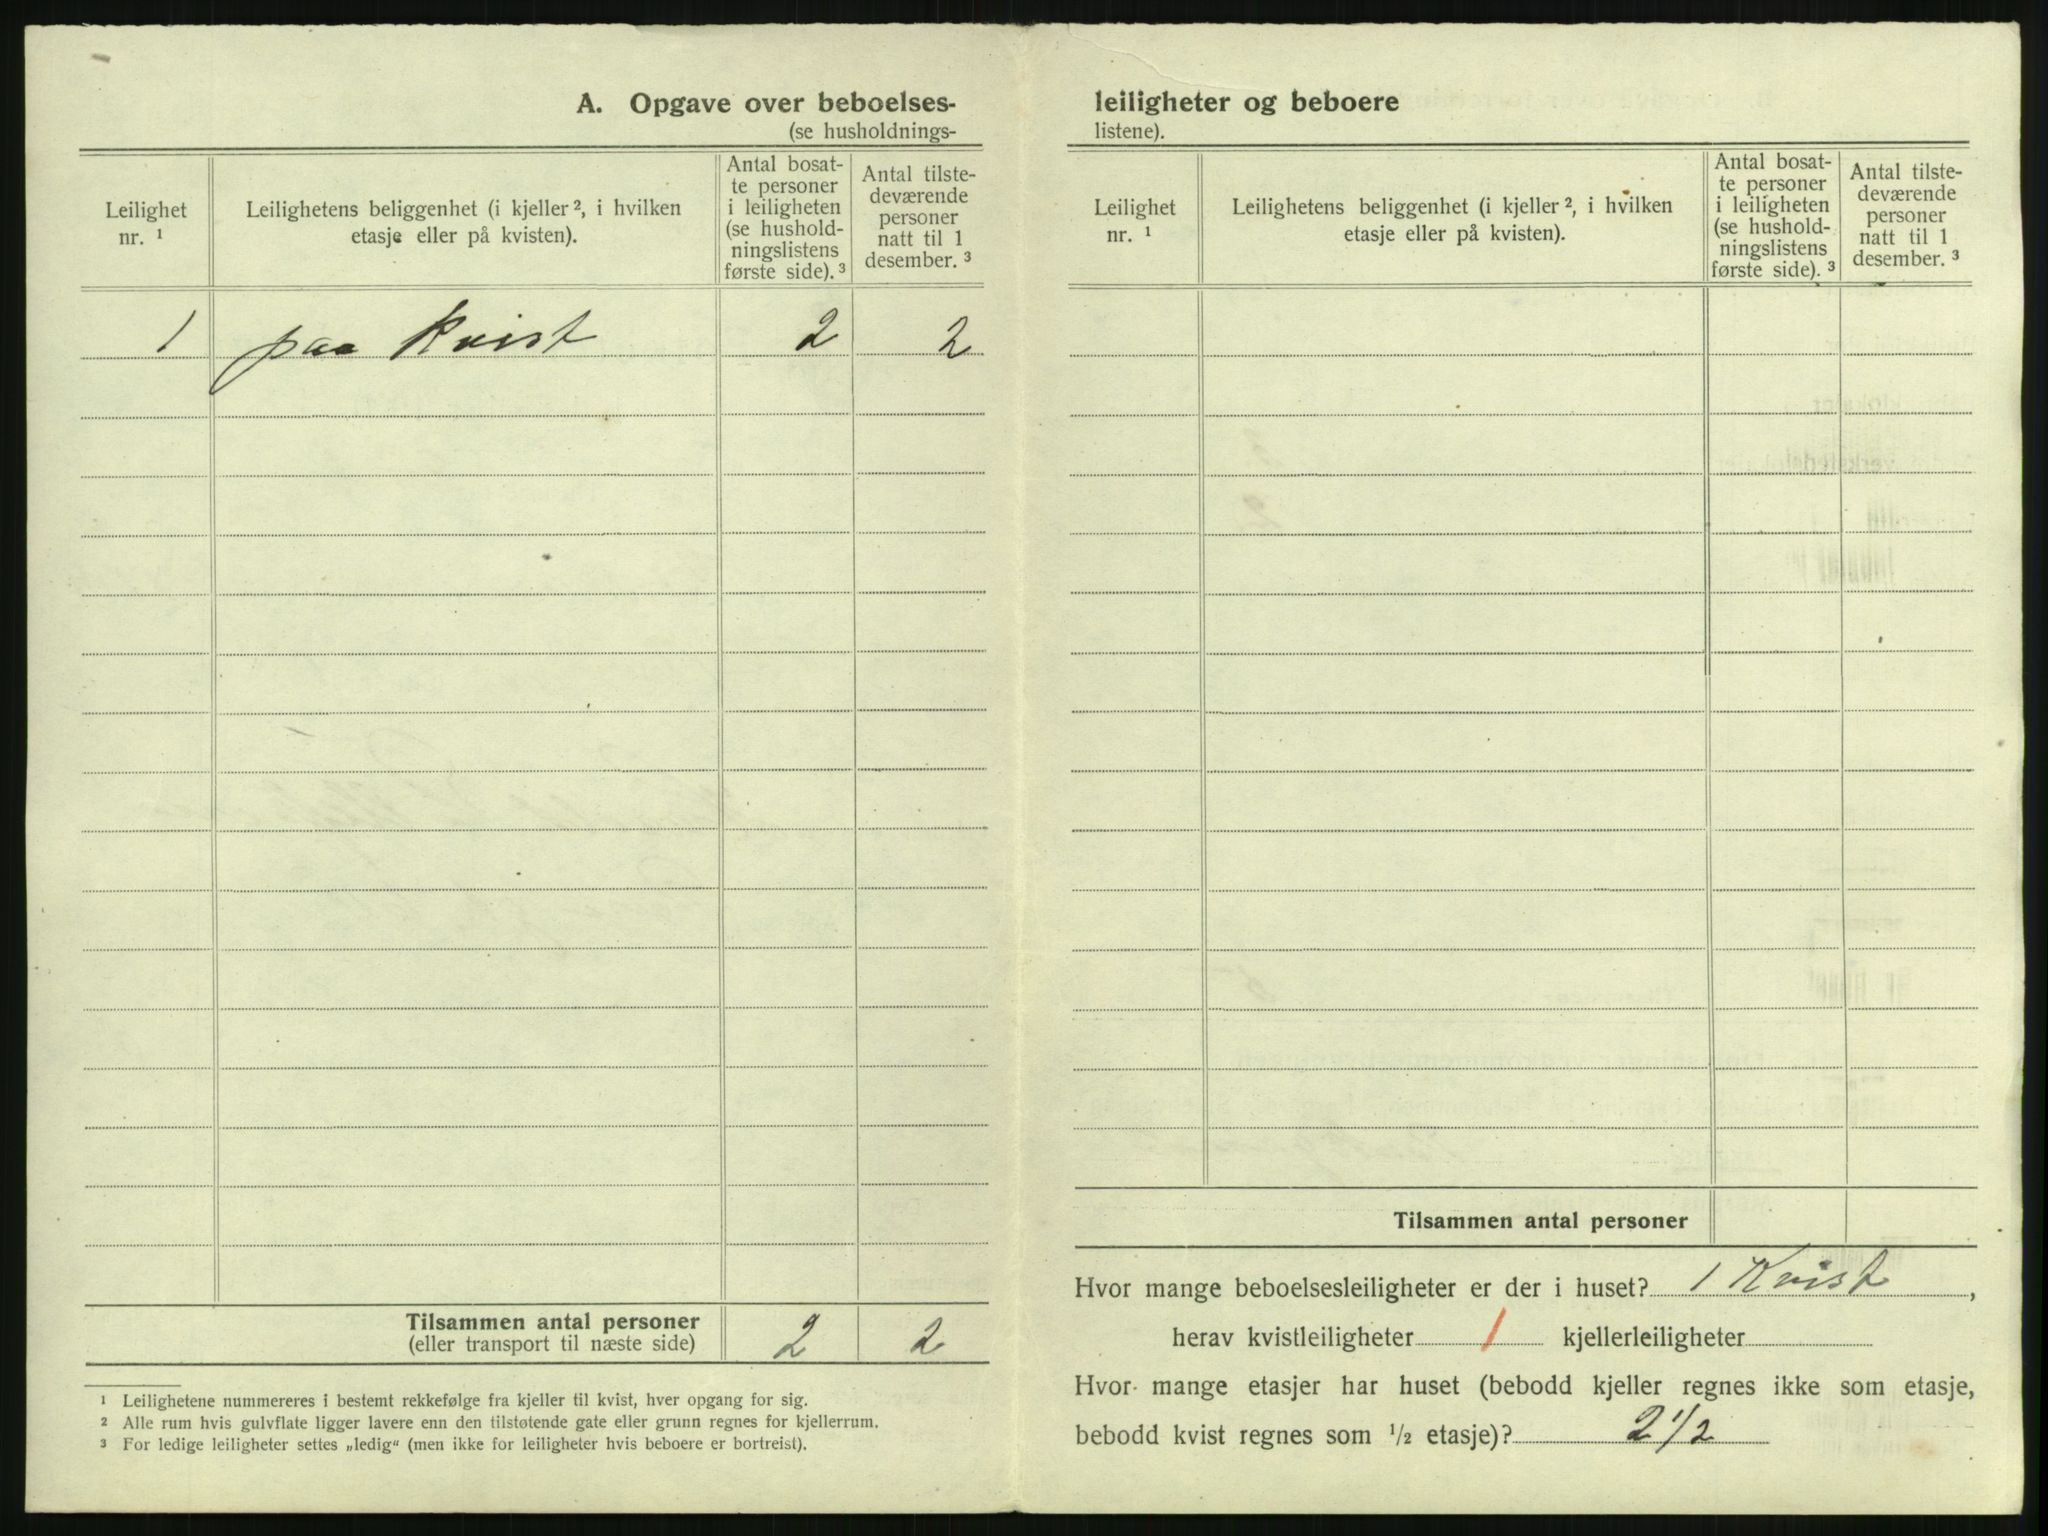 A. Opgave over beboelses-
(se husholdnings-
Leilighet
nr. ¹
Leilighetens beliggenhet (i kjeller ², i hvilken
etasje eller på kvisten).
Antal bosat-
te personer
i leiligheten
(se hushold-
ningslistens
første side). ³
Antal tilste-
deværende
personer
natt til 1
desember. ³
1 paa kvist 2 2
Tilsammen antal personer 2 2
(eller transport til næste side)
¹ Leilighetene nummereres i bestemt rekkefølge fra kjeller til kvist, hver opgang for sig.
² Alle rum hvis gulvflate ligger lavere enn den tilstøtende gate eller grunn regnes for kjellerrum.
³ For ledige leiligheter settes „ledig“ (men ikke for leiligheter hvis beboere er bortreist).
leiligheter og beboere
listene).
Leilighet
nr. ¹
Leilighetens beliggenhet (i kjeller ², i hvilken
etasje eller på kvisten).
Antal bosat-
te personer
i leiligheten
(se hushold-
ningslistens
første side). ³
Antal tilste-
deværende
personer
natt til 1
desember. ³
Tilsammen antal personer
Hvor mange beboelsesleiligheter er der i huset? 1 Kvist,
herav kvistleiligheter 1 kjellerleiligheter
Hvor mange etasjer har huset (bebodd kjeller regnes ikke som etasje,
bebodd kvist regnes som ½ etasje)? 2 1/2